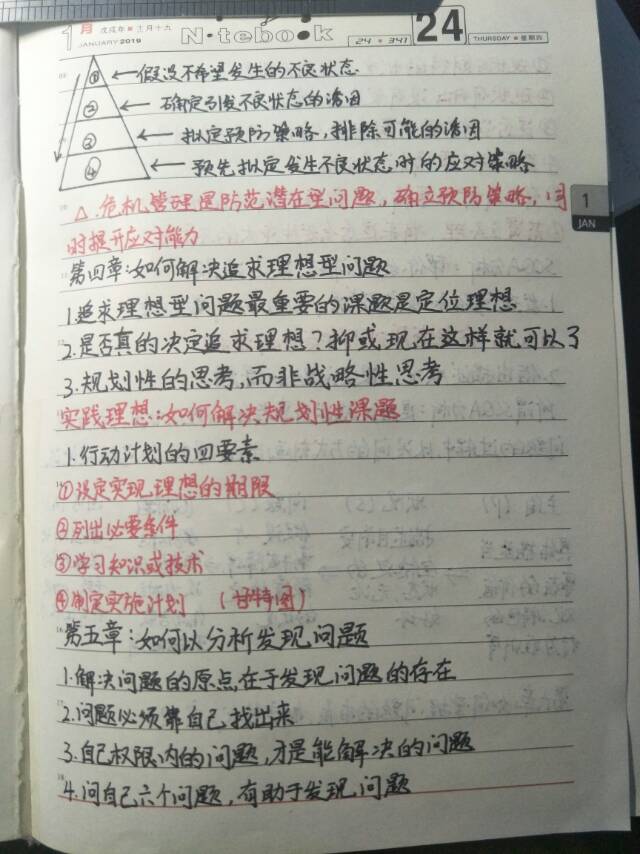 1月 戊戌年 十二月十九
JANUARY 2019
N·tebo●k
24 • 341
24
THURSDAY 星期四
① ←假设不希望发生的不良状态
② ←确定引发不良状态的诱因
③ ←拟定预防策略,排除可能的诱因
④ ←预先拟定发生不良状态时的应对策略
△.危机管理是防范潜在型问题,确立预防策略,同
时提升应对能力
1
JAN
第四章:如何解决追求理想型问题
1.追求理想型问题最重要的课题是定位理想
2.是否真的决定追求理想?抑或现在这样就可以了
3.规划性的思考,而非战略性思考
实践理想:如何解决规划性课题
1.行动计划的四要素
①设定实现理想的期限
②列出必要条件
③学习知识或技术
④制定实施计划 (甘特图)
第五章:如何以分析发现问题
1.解决问题的原点在于发现问题的存在
2.问题必须靠自己找出来
3.自己权限内的问题,才是能解决的问题
4.问自己六个问题,有助于发现问题